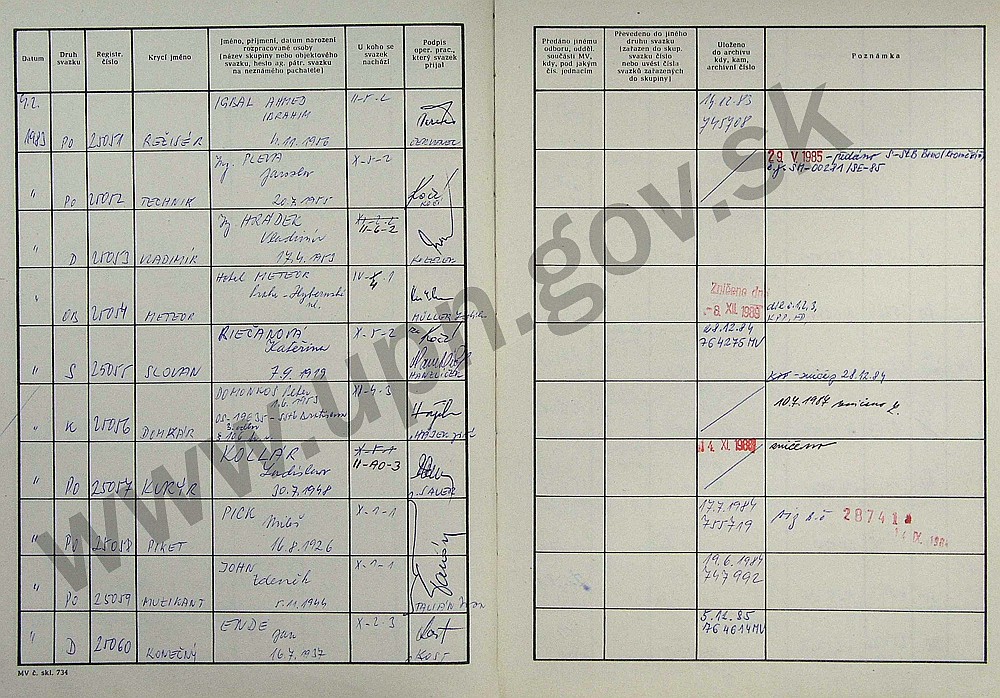 Datum
Druh
svazku
Registr.
číslo
Krycí jméno
Jméno, příjmení, datum narození
rozpracované osoby
(název skupiny nebo objektového
svazku, heslo ag. pátr. svazku
na neznámého pachatele)
U koho se
svazek
nachází
Podpis
oper. prac.,
který svazek
přijal
Předáno jinému
odboru, odděl.
součásti MV,
kdy, pod jakým
čís. jednacím
Převedeno do jiného
druhu svazku
(zařazen do skup.
svazku, číslo
nebo uvést čísla
svazků zařazených
do skupiny)
Uloženo
do archivu
kdy, kam,
archivní číslo
Poznámka
1983 PO 25051 REŽISÉR
IGBAL AHMED
IBRAHIM
4.11.1956
II-5-2
14.12.83
745708
" PO 25052 TECHNIK
Ing. PLEVA
Jaroslav
20.7.1955
X-5-2
KOČÍ
29. V. 1985 - předáno S-StB Brno
" D 25053 VLADIMÍR
Ing. HRÁDEK
Vladimír
17.4.1953
II-6-2
" OB 25054 METEOR
Hotel METEOR
Praha - Hybernská
ul.
IV-4-1
MÜLLER
Zničeno dne
-8. XII. 1989
" S 25055 SLOVAN
Kateřina
7.9.1919
X-5-2
HAVELIČEK
28.12.84
764275 MV
28.12.84
" K 25056 DOMKÁR
DOMONKOS Peter
1.6.1953
II-4-3
HÁJEK Jiří
10.7.1987 zničeno
" PO 25057 KURÝR
KOLLÁR
Ladislav
30.7.1948
II-AO-3
SAUER
14. XI. 1988
zničeno
" PO 25058 PIKET
PICK
Miloš
16.8.1926
X-1-1
17.7.1984
755719
28741
14. IX. 1984
" PO 25059 MUZIKANT
JOHN
Zdeněk
5.11.1944
X-1-1
TALIÁN Ivan
19.6.1984
747992
" D 25060 KONEČNÝ
ENDE
Jan
16.7.1937
X-2-3
KOST
5.12.85
764614 MV
MV č. skl. 734
www.upn.gov.sk